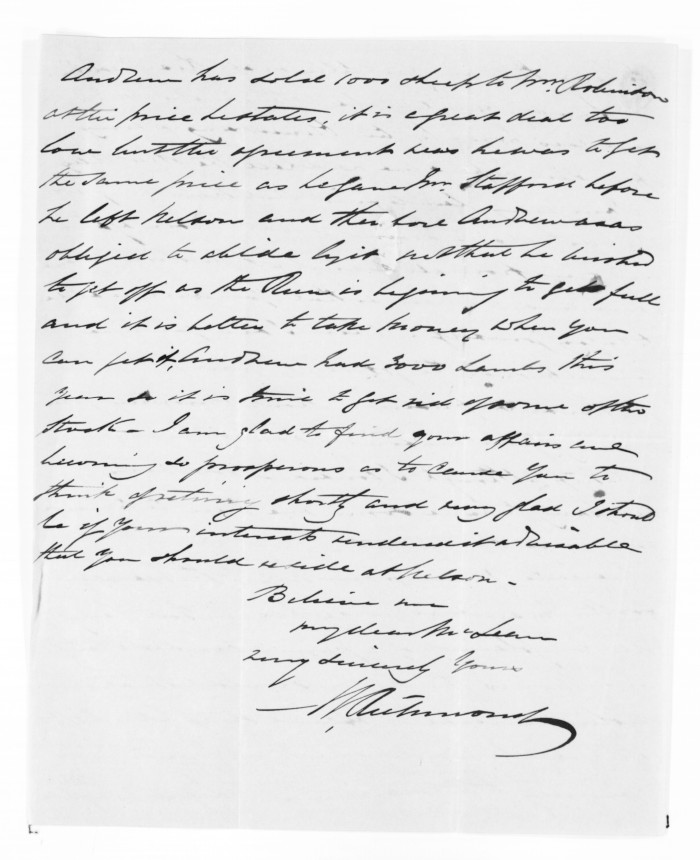 Andrew has sold 1000 sheep to Mr. Robinson
at the price he states, it is a great deal too
low but the agreement was he was to get
the same price as he gave Mr. Stafford before
he left Nelson and therefore Andrew was
obliged to abide by it not that he wished
to get off as the Run is beginning to get full
and it is better to take money when you
can get it, Andrew had 3000 Lambs this
year so it is time to get rid of some of the
stock - I am glad to find your affairs are
becoming so prosperous as to cause you to
think of retiring shortly and very glad I should
be if your interests rendered it advisable
that you should reside at Nelson -
Believe me
my dear McLean
very sincerely Yours
Richmond